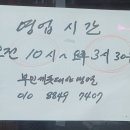 영업시간
오전 10시~오후 3시30분
010 8849 7407